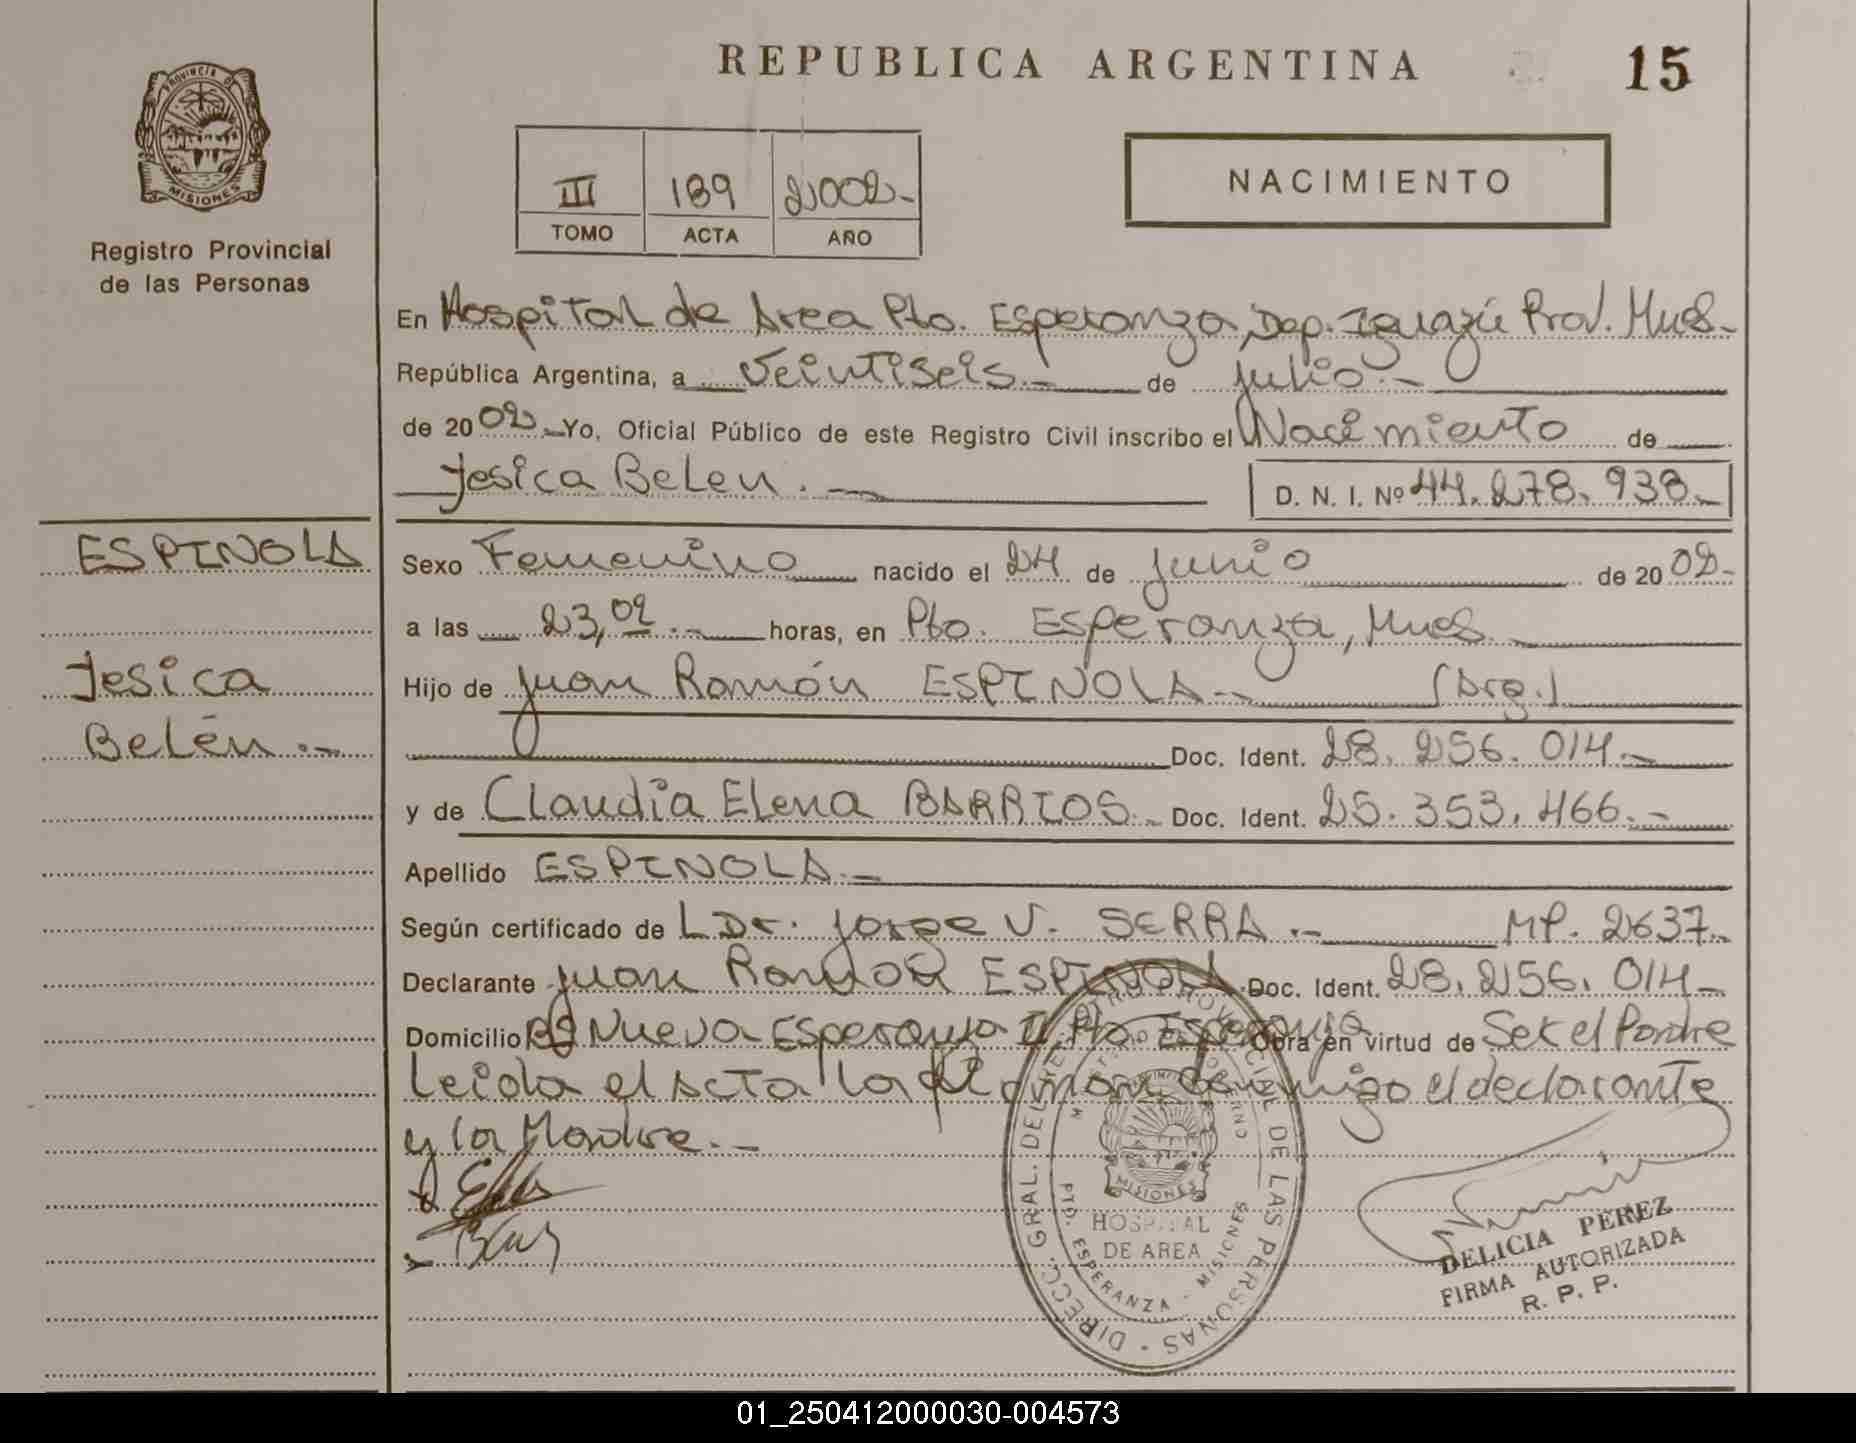 REPUBLICA ARGENTINA
15
PROVINCIA DE
MISIONES
Registro Provincial
de las Personas
III 189 2002-
TOMO ACTA AÑO
NACIMIENTO
En Hospital de Area Pto. Esperanza, Dep. Iguazú Prov. Mnes.-
República Argentina, a Veintiseis.- de julio.-
de 2002.- Yo, Oficial Público de este Registro Civil inscribo el Nacimiento de
Jesica Belen.-
D. N. I. Nº 44.278.938.-
ESPINOLA
Jesica
Belén.-
Sexo Femenino nacido el 24 de junio de 2002-
a las 23,02.- horas, en Pto. Esperanza, Mnes.
Hijo de Juan Ramón ESPINOLA.- (Arg.)
Doc. Ident. 28.256.014.-
y de Claudia Elena BARRIOS.- Doc. Ident. 25.353.466.-
Apellido ESPINOLA.-
Según certificado de L Dr. Jorge V. SERRA.- MP. 2637.-
Declarante Juan Ramón ESPINOLA Doc. Ident. 28.256.014-
Domicilio Bº Nueva Esperanza II Pto. Esperanza Obra en virtud de Ser el Padre
Leida el Acta la firman conmigo el declarante
y la Madre.-
DIRECC. GRAL. DEL REGISTRO PROVINCIAL DE LAS PERSONAS
MINISTERIO DE GOBIERNO
PROVINCIA
MISIONES
HOSPITAL
DE AREA
PTO. ESPERANZA - MISIONES
DELICIA PEREZ
FIRMA AUTORIZADA
R. P. P.
01_250412000030-004573